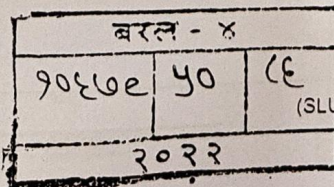 बरल - ४
१०६७९ ५० ८६
(SLU
२०२२